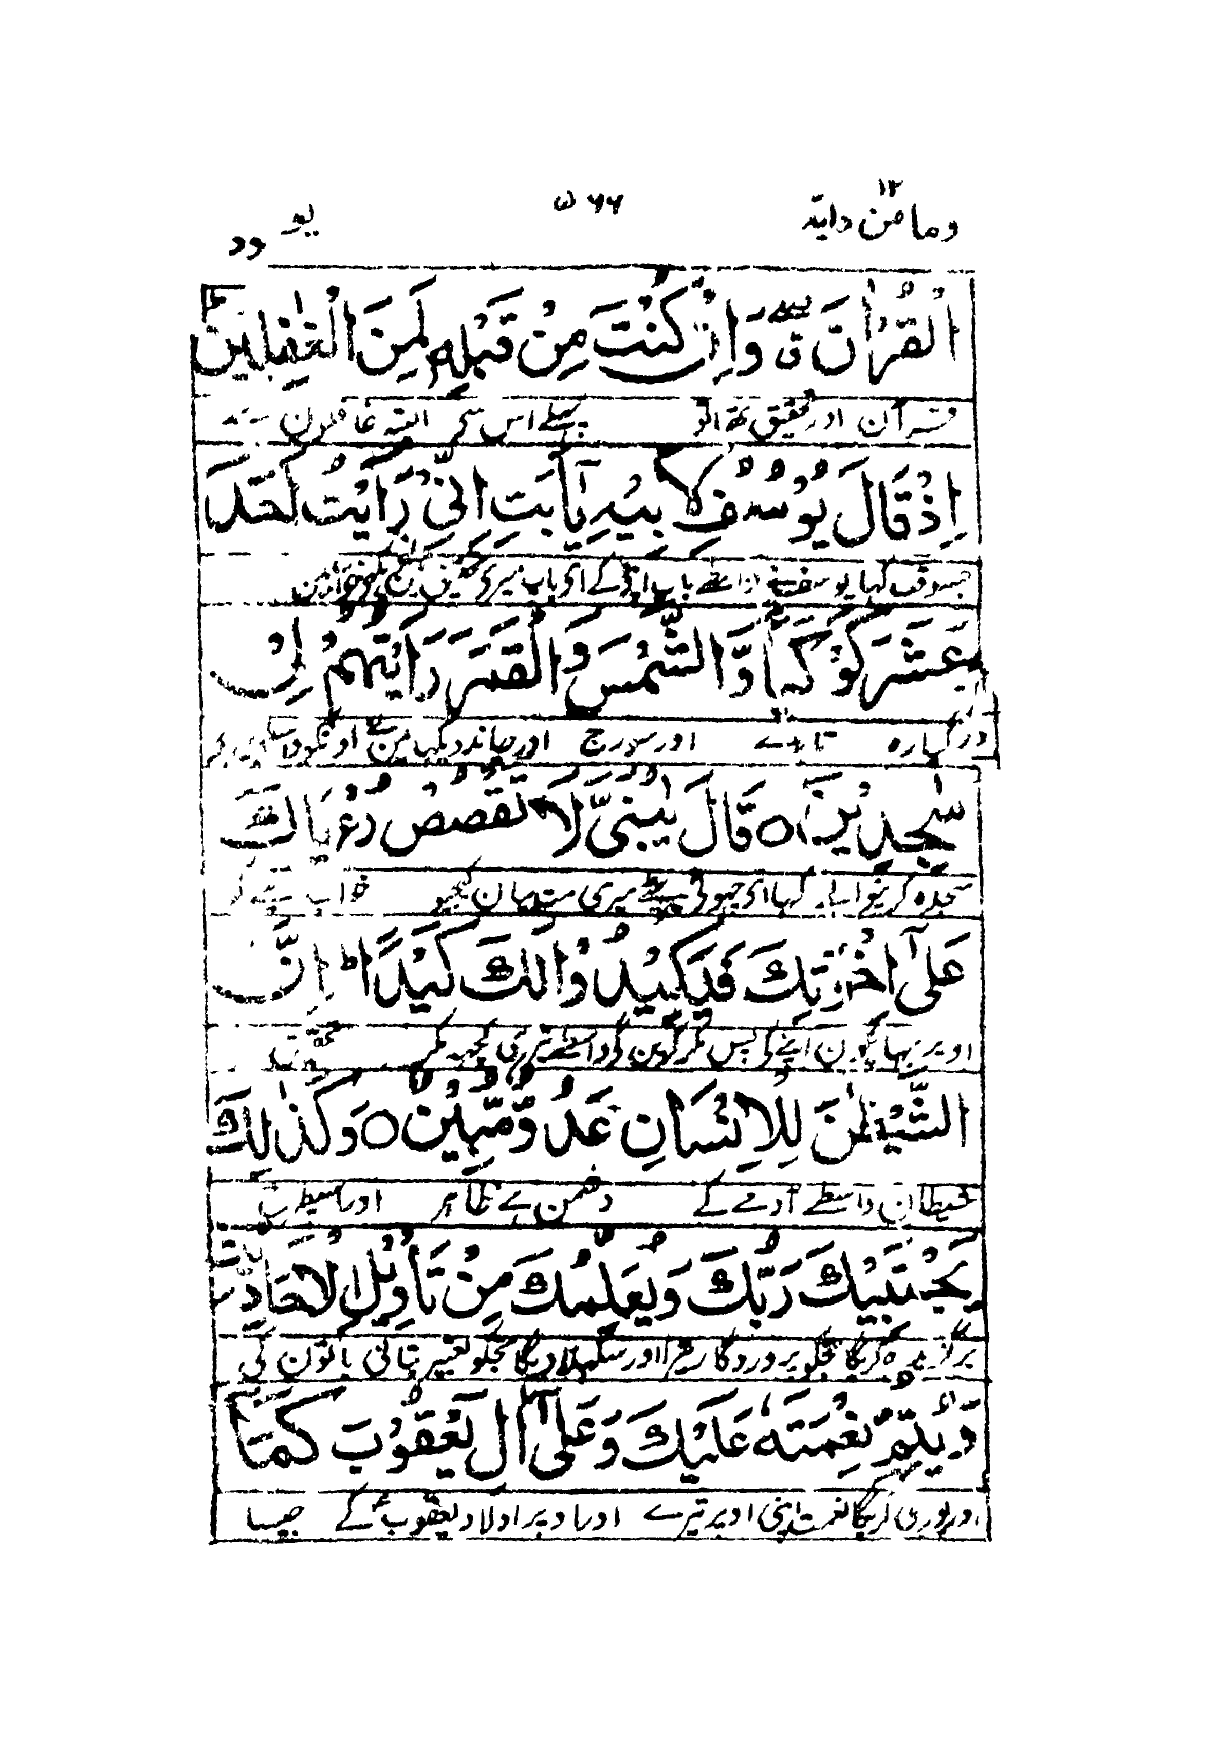 وما من دابة ١٢
٥٦٦
الْقُرْاٰنَ ۖ وَاِنْ كُنْتَ مِنْ قَبْلِهٖ لَمِنَ الْغٰفِلِيْنَ
قرآن اور تحقیق تھا تو پہلے اس سے البتہ غافلون سے
اِذْ قَالَ يُوْسُفُ لِاَبِيْهِ يٰۤاَبَتِ اِنِّىْ رَاَيْتُ اَحَدَ
جسوقت کہا یوسف نے واسطے باپ اپنے کے ای باپ میری تحقیق مین نے
عَشَرَ كَوْكَبًا وَّالشَّمْسَ وَالْقَمَرَ رَاَيْتُهُمْ لِىْ
گیارہ تارے اور سورج اور چاند دیکہا مین نے اونکو واسطے
سٰجِدِيْنَ ○ قَالَ يٰبُنَىَّ لَا تَقْصُصْ رُءْيَاكَ
سجدہ کرنیوالے کہا ای چھوٹی بیٹے میری مت بیان کیجیو خواب اپنے کو
عَلٰۤى اِخْوَتِكَ فَيَكِيْدُوْا لَكَ كَيْدًا ؕ اِنَّ
اوپر بہائیون اپنے کی پس مکر کرین گے واسطے تیری کچہہ مکر تحقیق
الشَّيْطٰنَ لِلْاِنْسَانِ عَدُوٌّ مُّبِيْنٌ ○ وَكَذٰلِكَ
شیطان واسطے آدمے کے دشمن ہے ظاہر اور اسیطرح
يَجْتَبِيْكَ رَبُّكَ وَيُعَلِّمُكَ مِنْ تَاْوِيْلِ الْاَحَادِيْثِ
برگزیدہ کریگا تجکو پروردگار تیرا اور سکہلادیگا تجکو تعبیر بتانی باتون کی
وَيُتِمُّ نِعْمَتَهٗ عَلَيْكَ وَعَلٰۤى اٰلِ يَعْقُوْبَ كَمَاۤ
اور پوری کریگا نعمت اپنی اوپر تیرے اور اوپر اولاد یعقوب کے جیسا